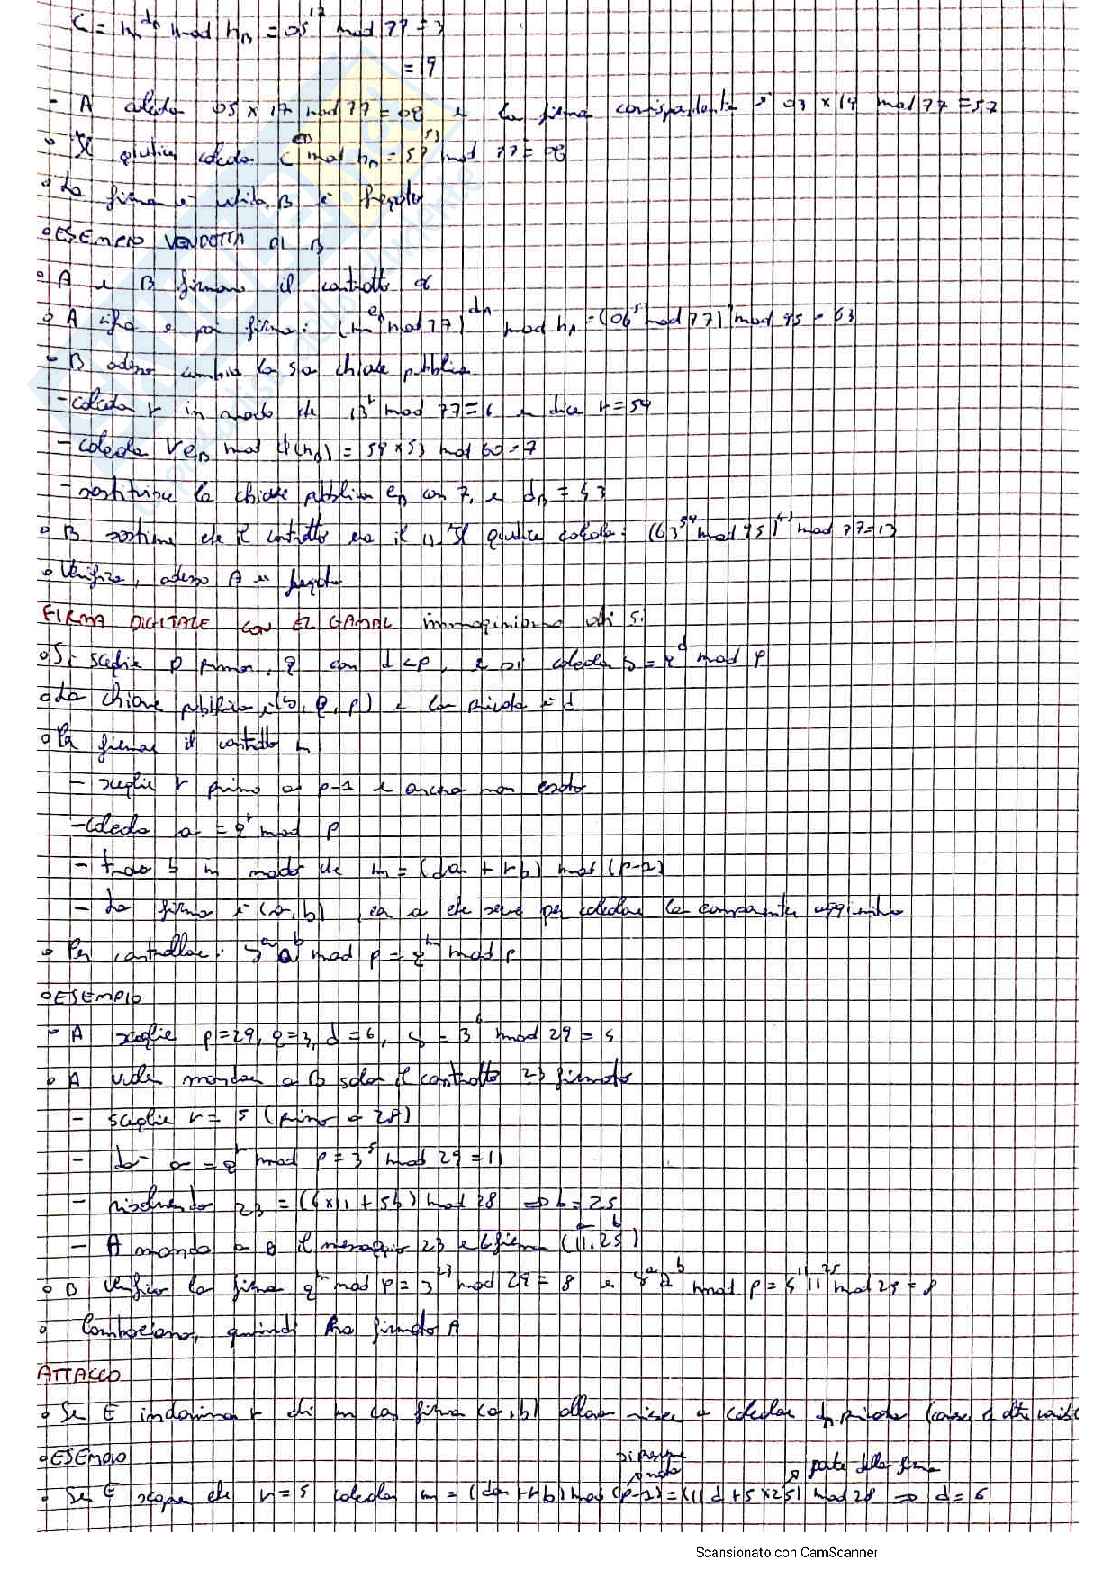 C = m^dB mod nB = 05^17 mod 77 = 3
= 19
- A calcola 05 x 17 mod 77 = 08 e la firma corrispondente è 03 x 19 mod 77 = 57
° Il giudice calcola C^eB mod nB = 57^53 mod 77 = 08
° La firma è valida, B è fregato
° ESEMPIO VENDETTA DI B
° A e B firmano il contratto
° A cifra e poi firma: (m^eB mod 77)^dA mod nA = (06^53 mod 77) mod 95 = 63
- B adesso cambia la sua chiave pubblica
- calcola r in modo che 13^r mod 77 = 6 e dice r = 59
- calcola r eB mod φ(nB) = 59 x 53 mod 60 = 7
- sostituisce la chiave pubblica eB con 7, e dB = 43
° B sostiene che il contratto era il Il giudice calcola: mod 95) mod 77 = 13
° Verifica, adesso A è fregato
FIRMA DIGITALE con EL GAMAL
° Si sceglie p primo, q con d < p, e si calcola s = q^d mod p
° La chiave pubblica è (s, q, p) e la privata è d
° Per firmare il contratto m
- sceglie r primo a p-1 e ancora non usato
- calcola a = q^r mod p
- trova b in modo che m = (da + rb) mod (p-1)
- La firma è (a, b), che serve per calcolare la componente aggiuntiva
° Per controllare: s^a a^b mod p = q^m mod p
° ESEMPIO
- A sceglie p=29, q=3, d=6, s = 3^6 mod 29 = 4
° A vuole mandare a B solo il contratto 23 firmato
- sceglie r = 5 (primo a 28)
- a = q^r mod p = 3^5 mod 29 = 11
- risolvendo 23 = (6x11 + 5b) mod 28 => b = 25
- A manda a B il messaggio 23 e la firma (11, 25) a b
° B verifica la firma q^m mod p = 3^23 mod 29 = 8 e s^a a^b mod p = 4^11 11^25 mod 29 = 8
° Combaciano, quindi ha firmato A
ATTACCO
° Se E indovina r di m con firma (a, b) allora riesce a calcolare d privata
° ESEMPIO
parte della firma
° Se E scopre che r = 5 calcola m = (da + rb) mod (p-1) = (11d + 5 x 25) mod 28 => d = 6
Scansionato con CamScanner